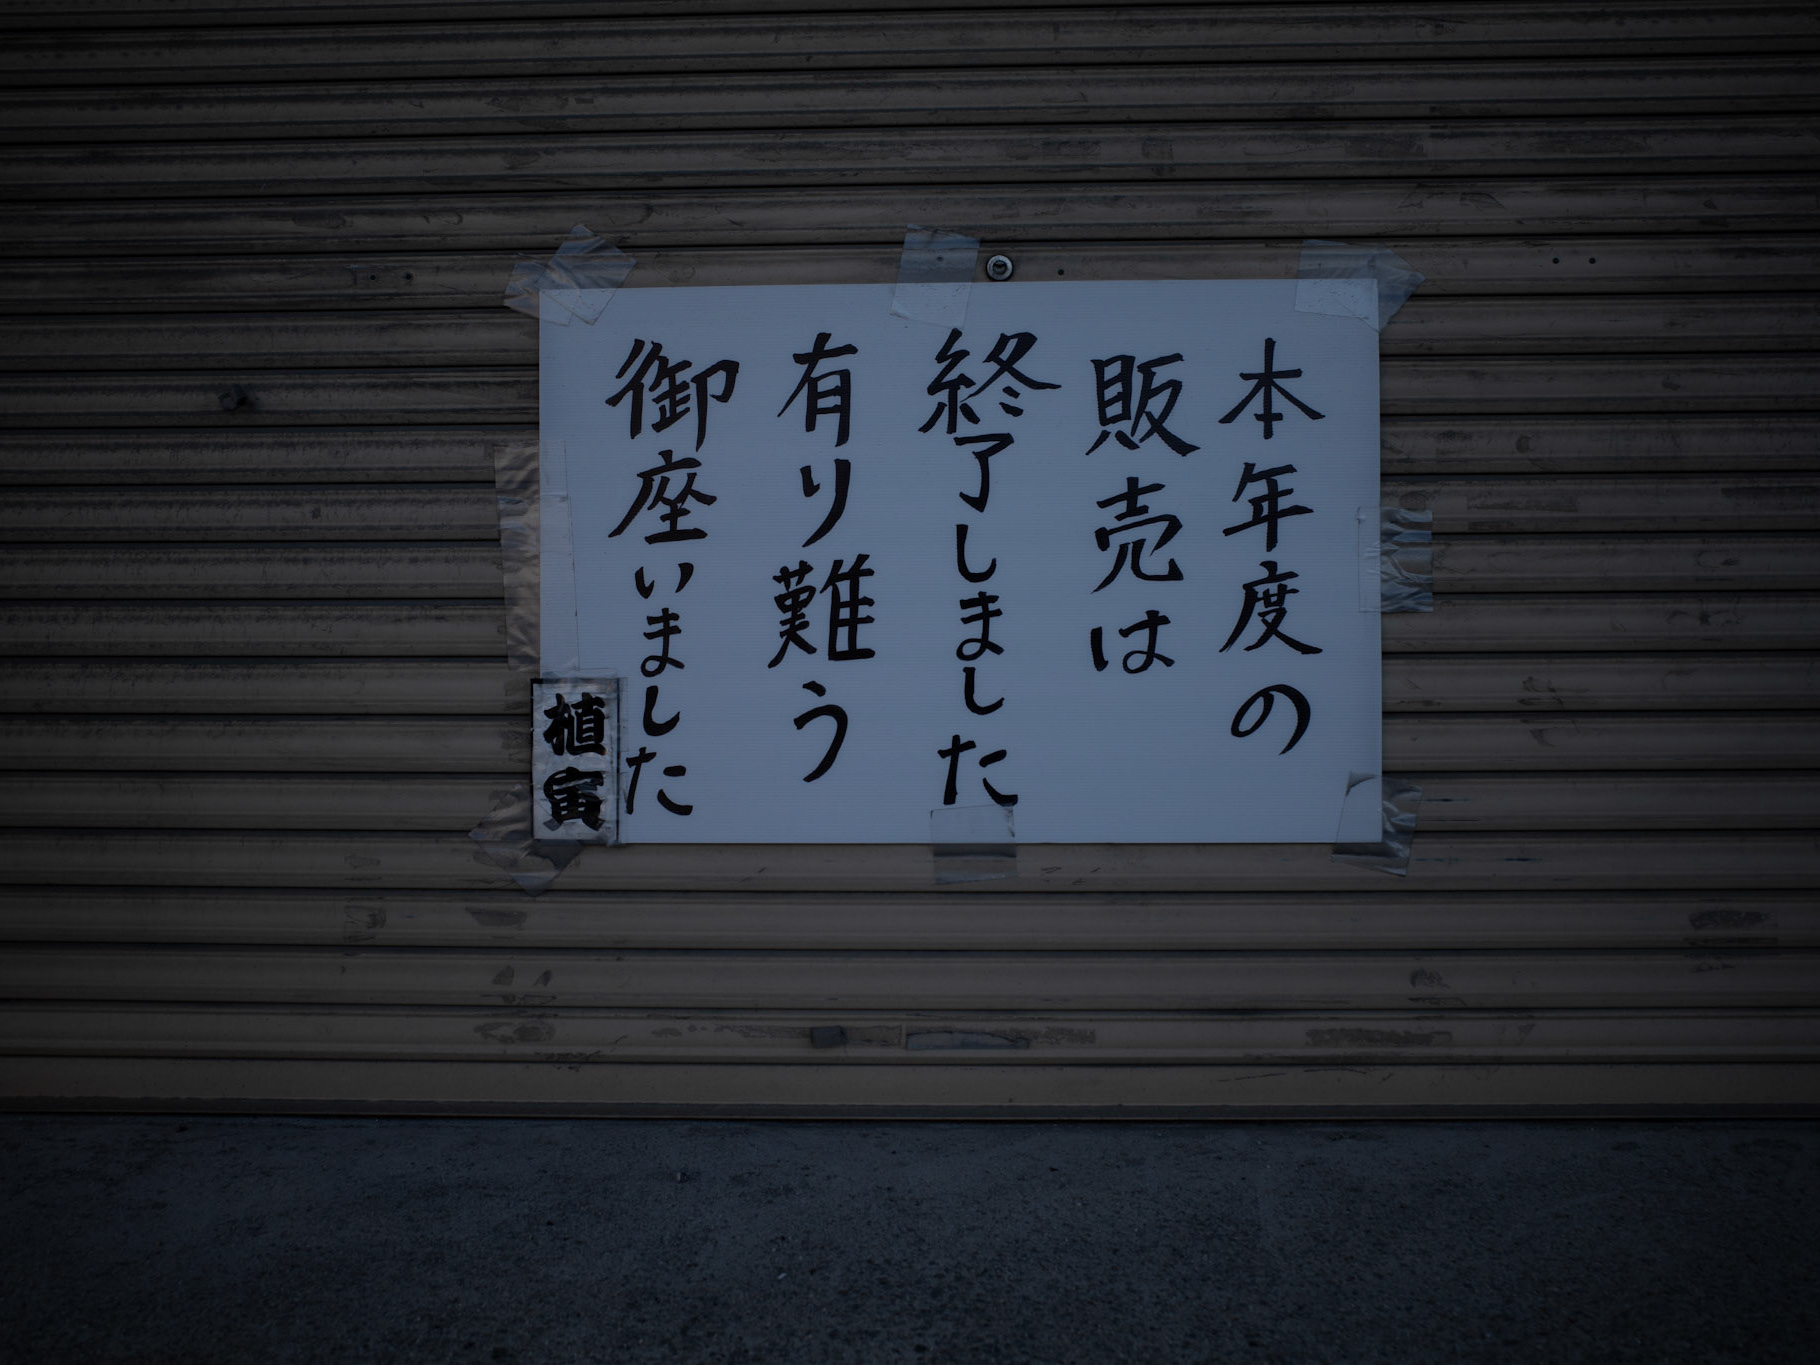 本年度の
販売は
終了しました
有り難う
御座いました
植寅